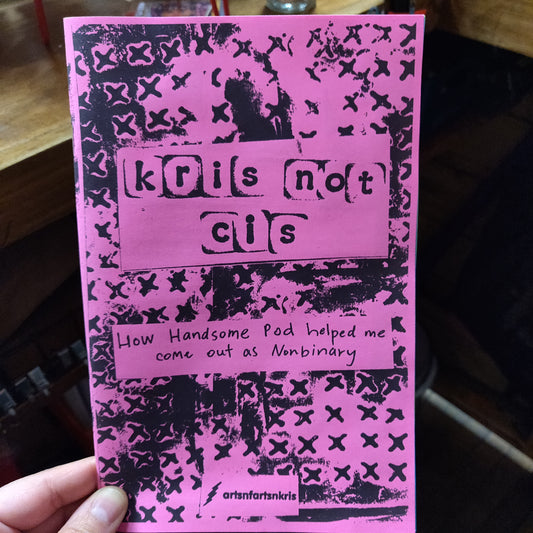 kris not
cis
How Handsome Pod helped me
come out as Nonbinary
artsnfartsnkris